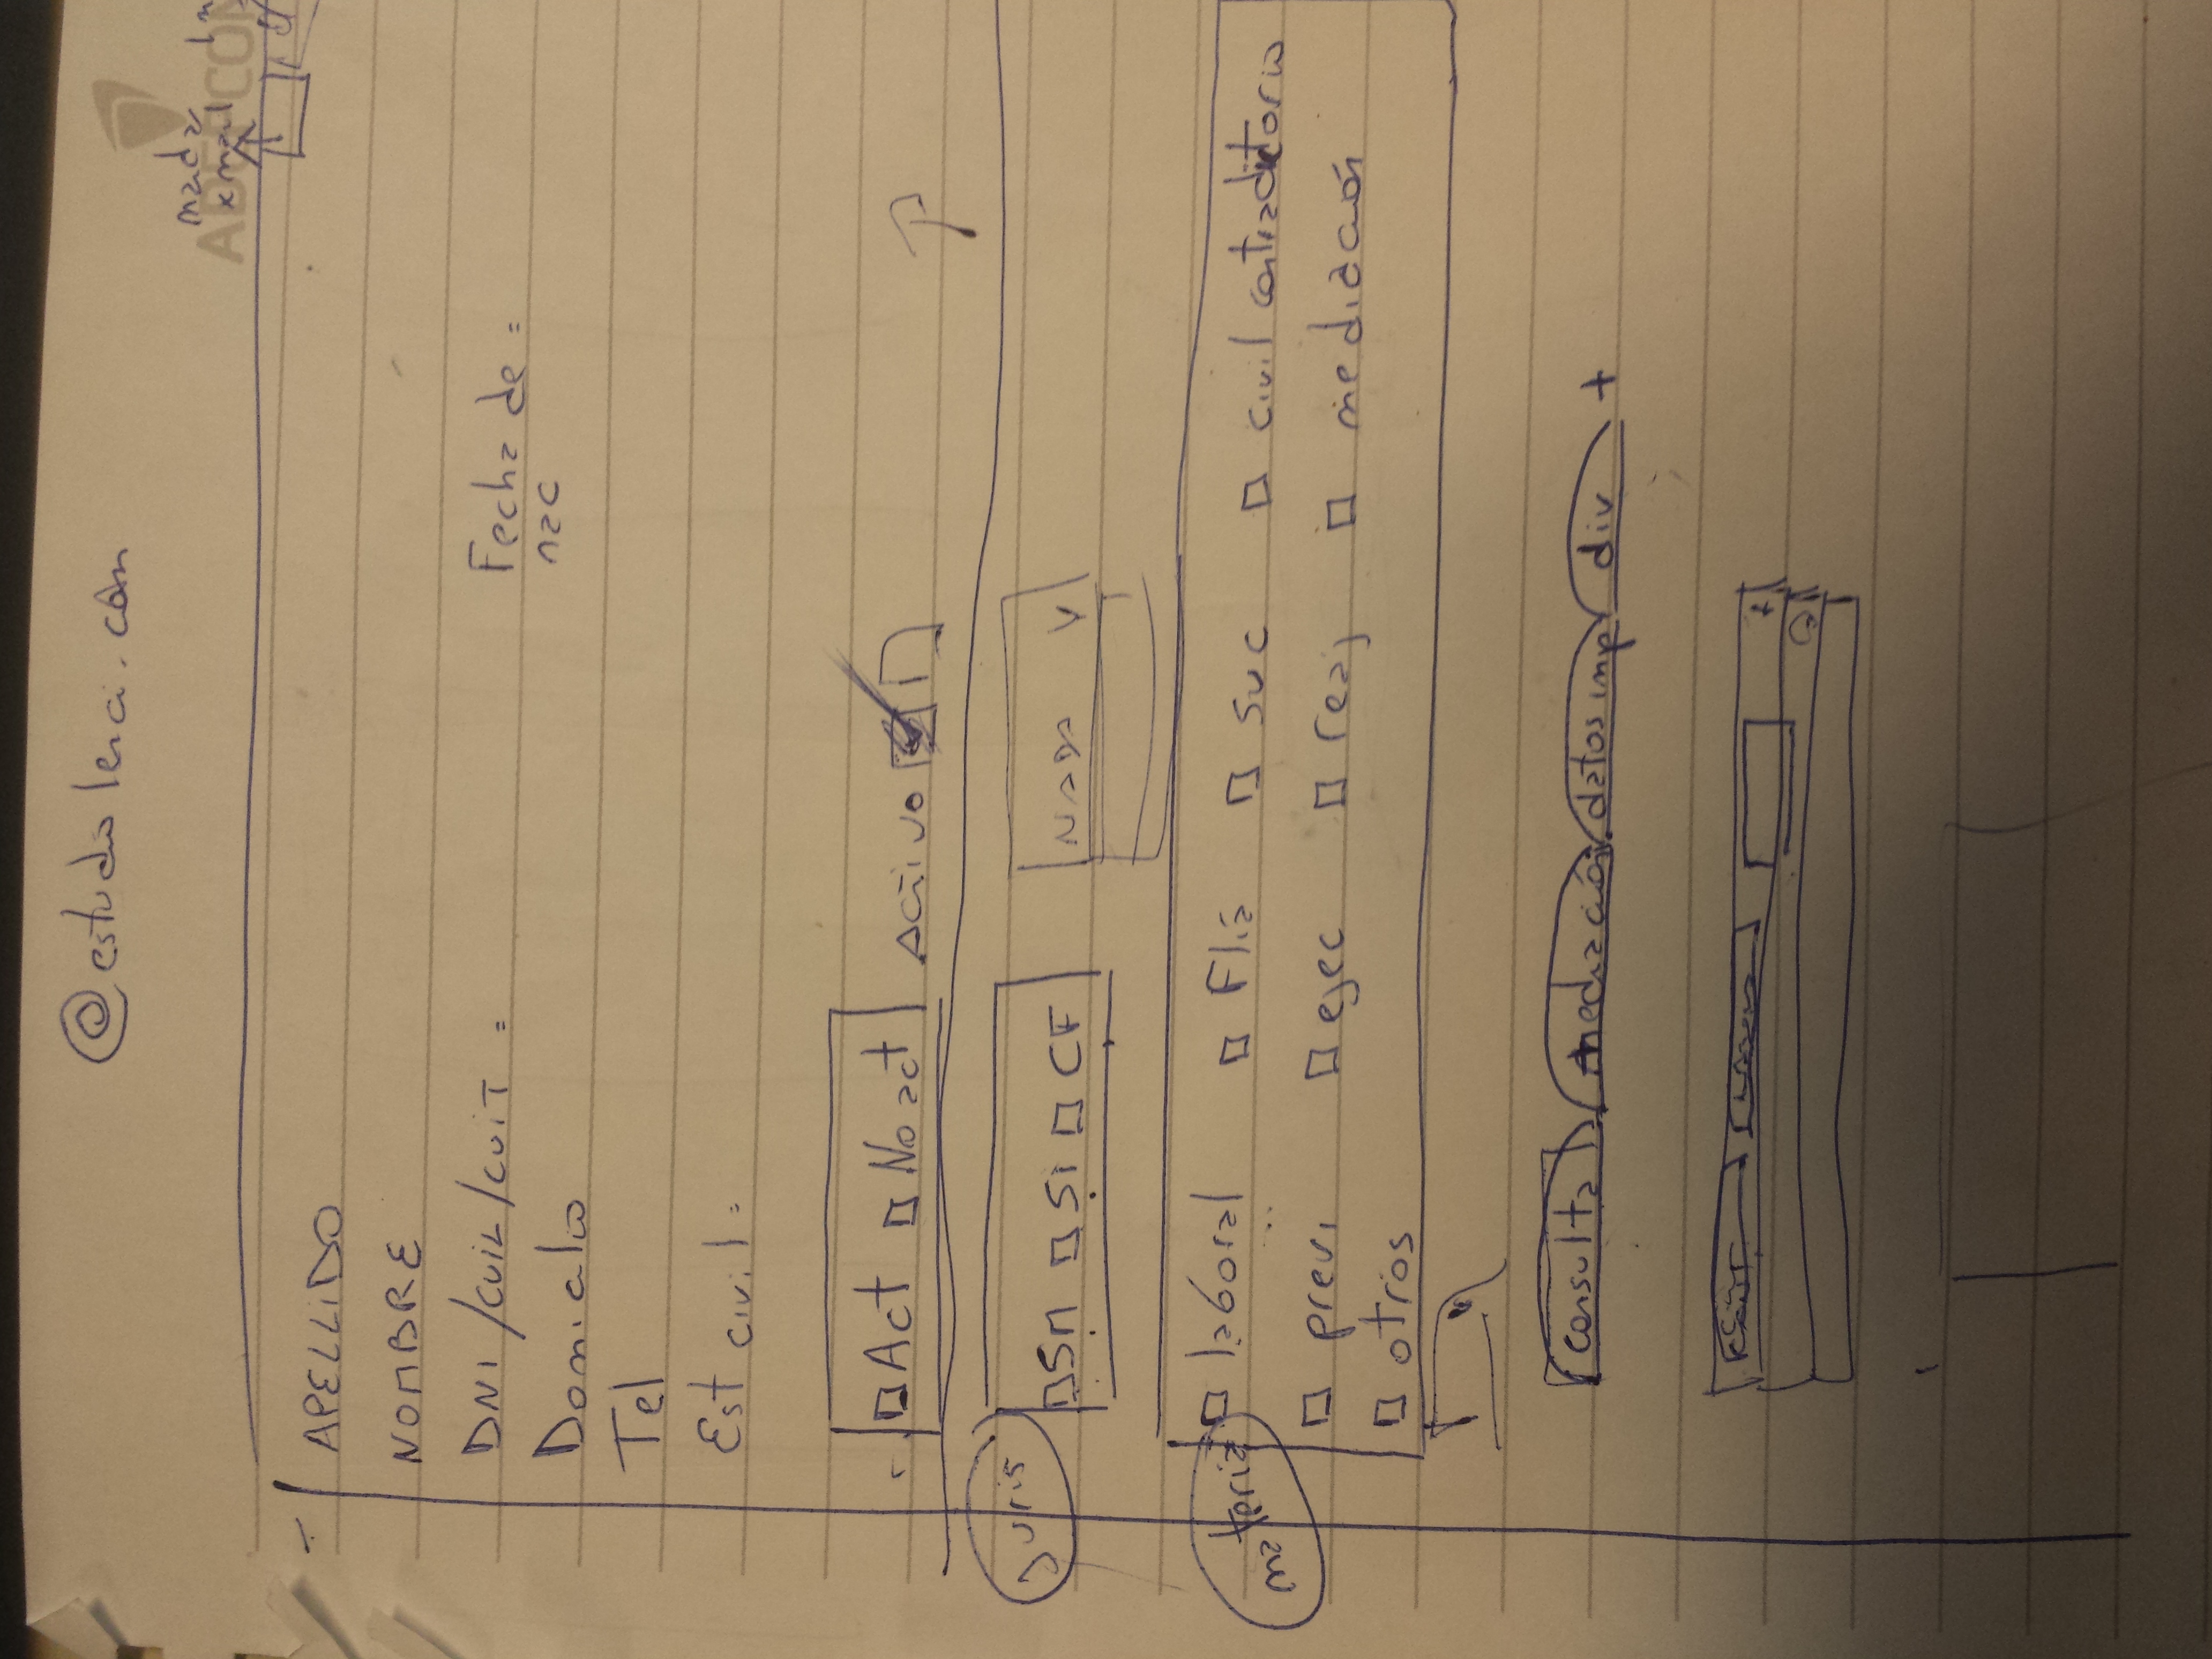 @estudiolenci.com
x mail
ADEPCON
APELLIDO
NOMBRE
DNI /CUIL/CUIT = Fecha de =
nac
Domicilio
Tel
Est civil =
Act No act Activo
Juris
SM SI CF NADA V
materia
laboral Flia suc civil contradictorio
previ ejec reaj mediación
otros
consulta mediación datos imp div +
+